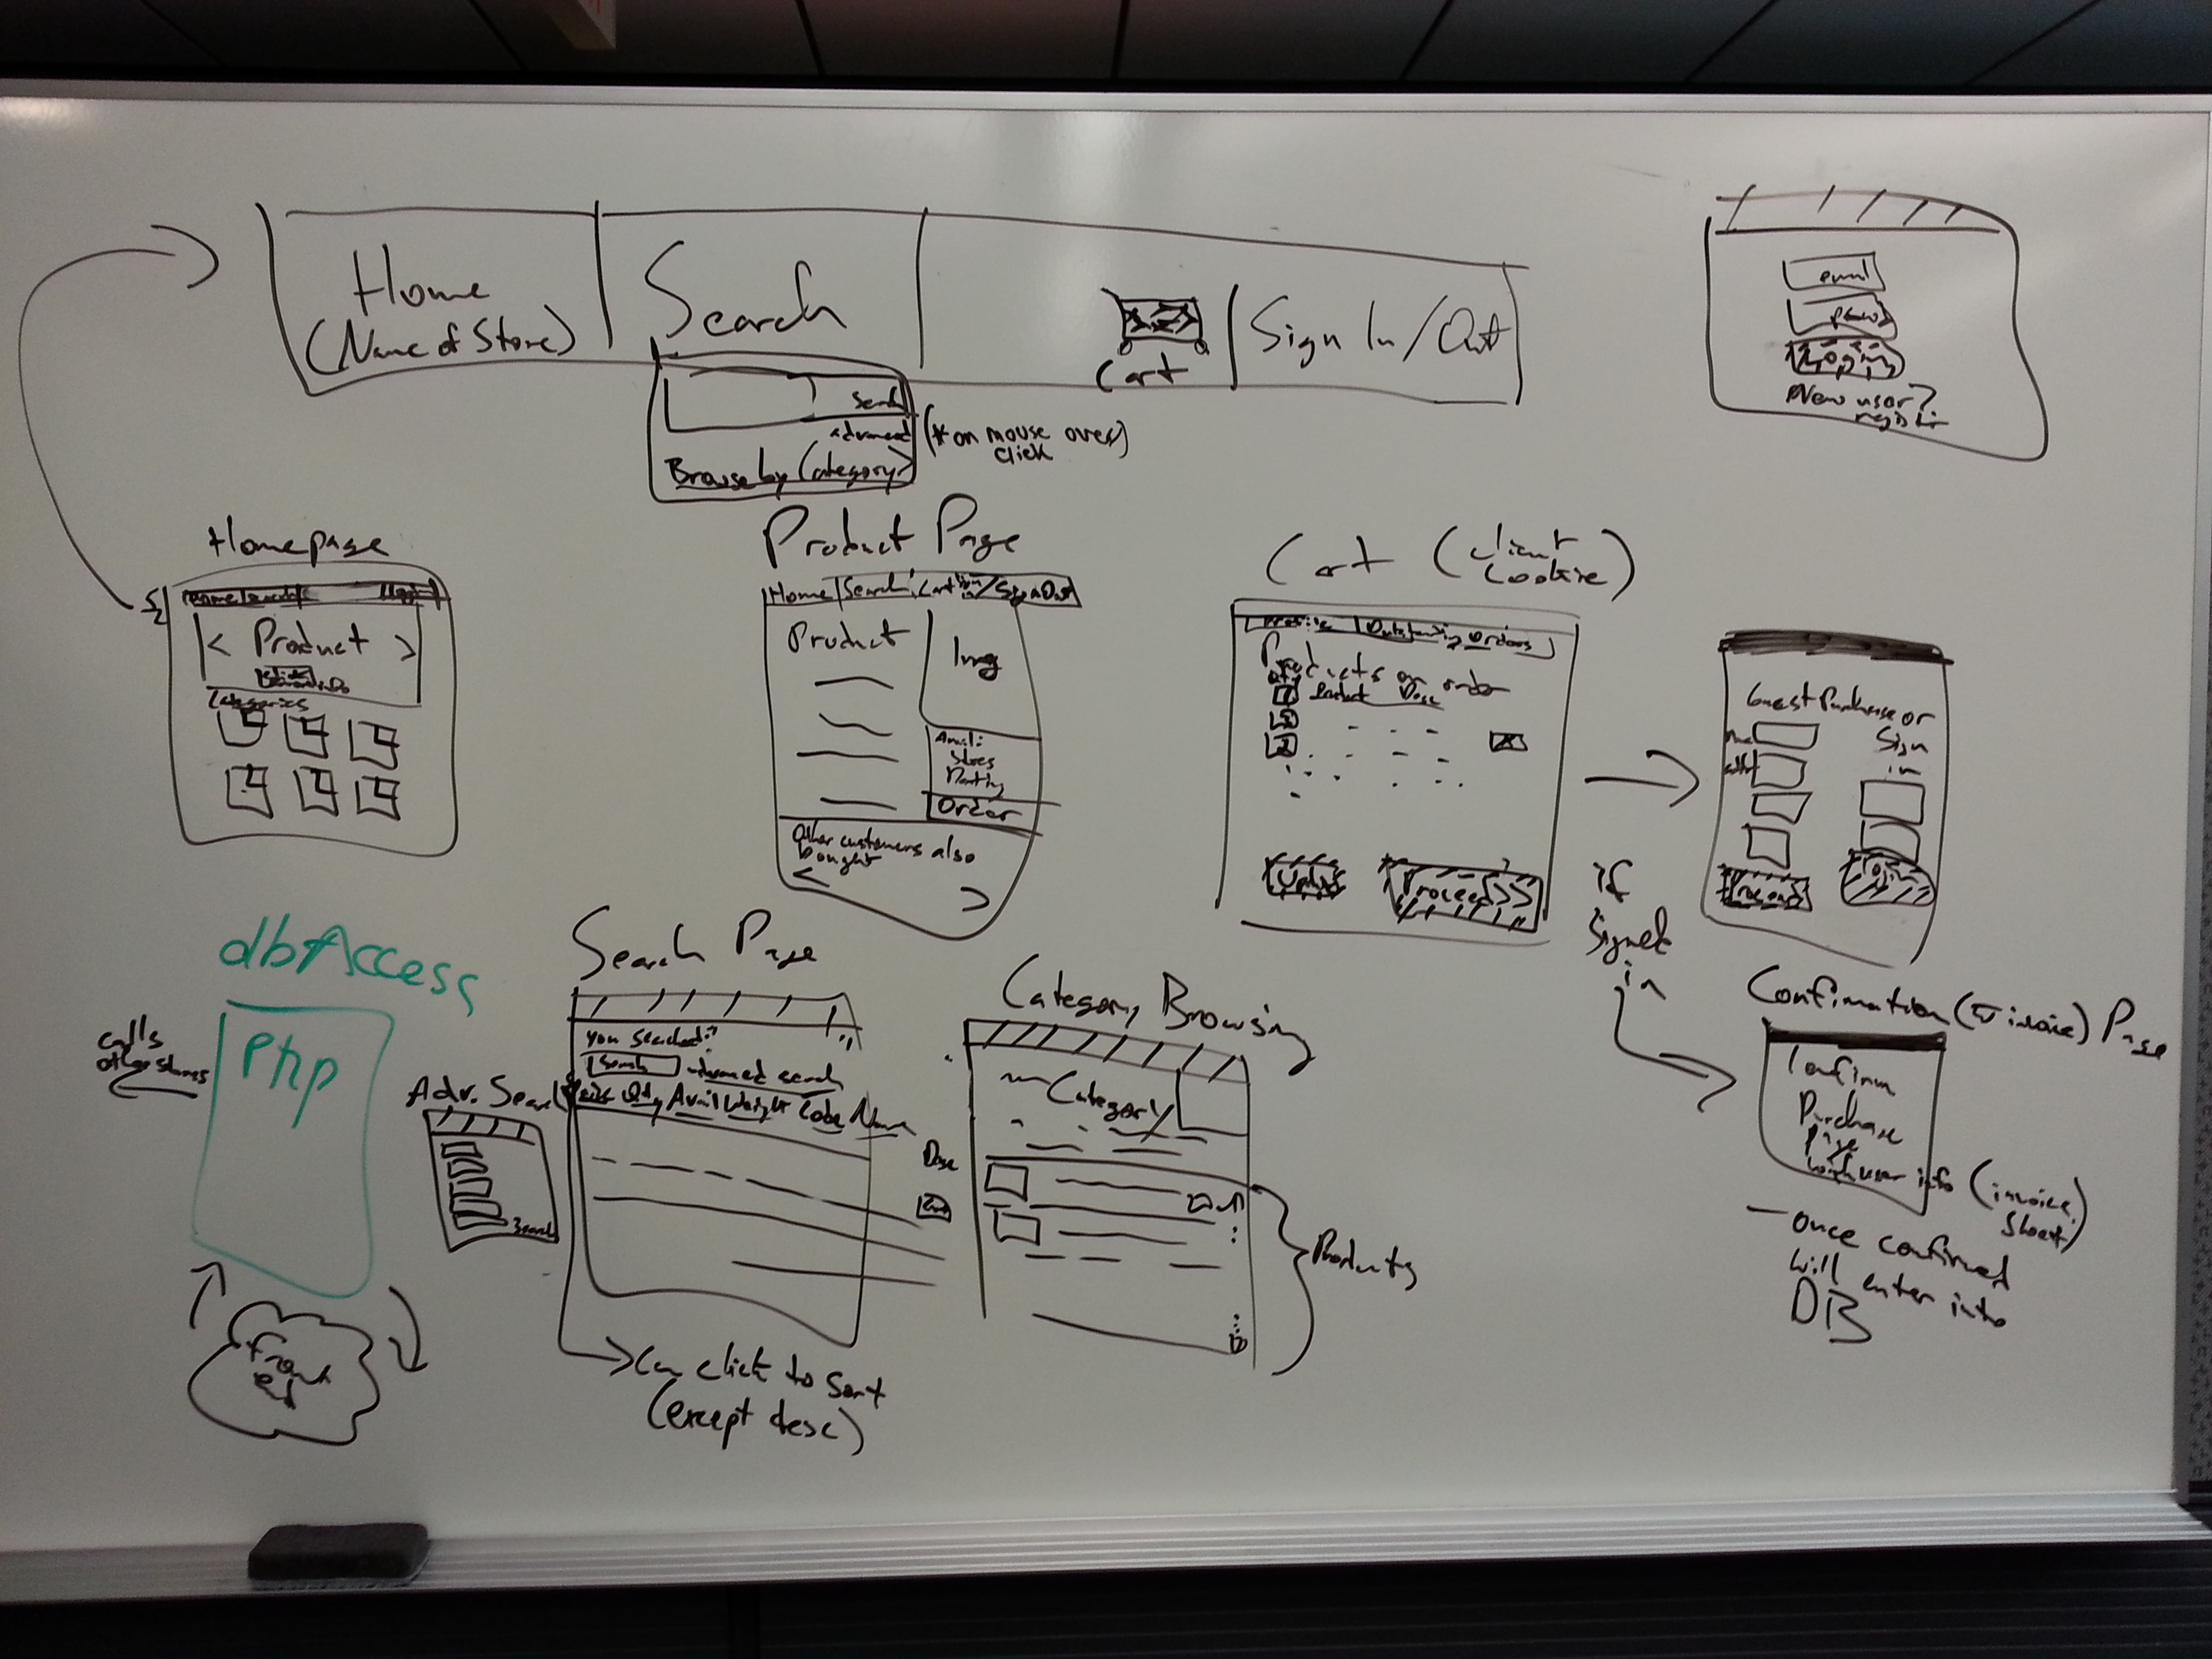 Home
(Name of Store)
Search
Cart
Sign In/Out
Search
advanced
Browse by Category
(* on mouse over)
click
email
Login
New user?
register
Homepage
< Product >
Categories
Product Page
Home | Search | Cart / Sign Out
Product
Img
Order
Other customers also
bought
< >
Cart (client
cookie)
Profile | Outstanding Orders
Products on order
Product Desc
Update
Proceed >>
Guest Purchase or
Sign
in
Proceed
if
signed
in
Confirmation ( ) Page
Confirm
Purchase
Page
w/ user info (invoice
sheet)
— once confirmed
will enter into
DB
dbAccess
Php
calls
other stores
Front
End
Search Page
you searched: "
"
Search advanced search
Qty Avail Weight Code Name
Desc
Adv. Search
Search
Can click to sort
(except desc)
Category Browsing
Category
Products